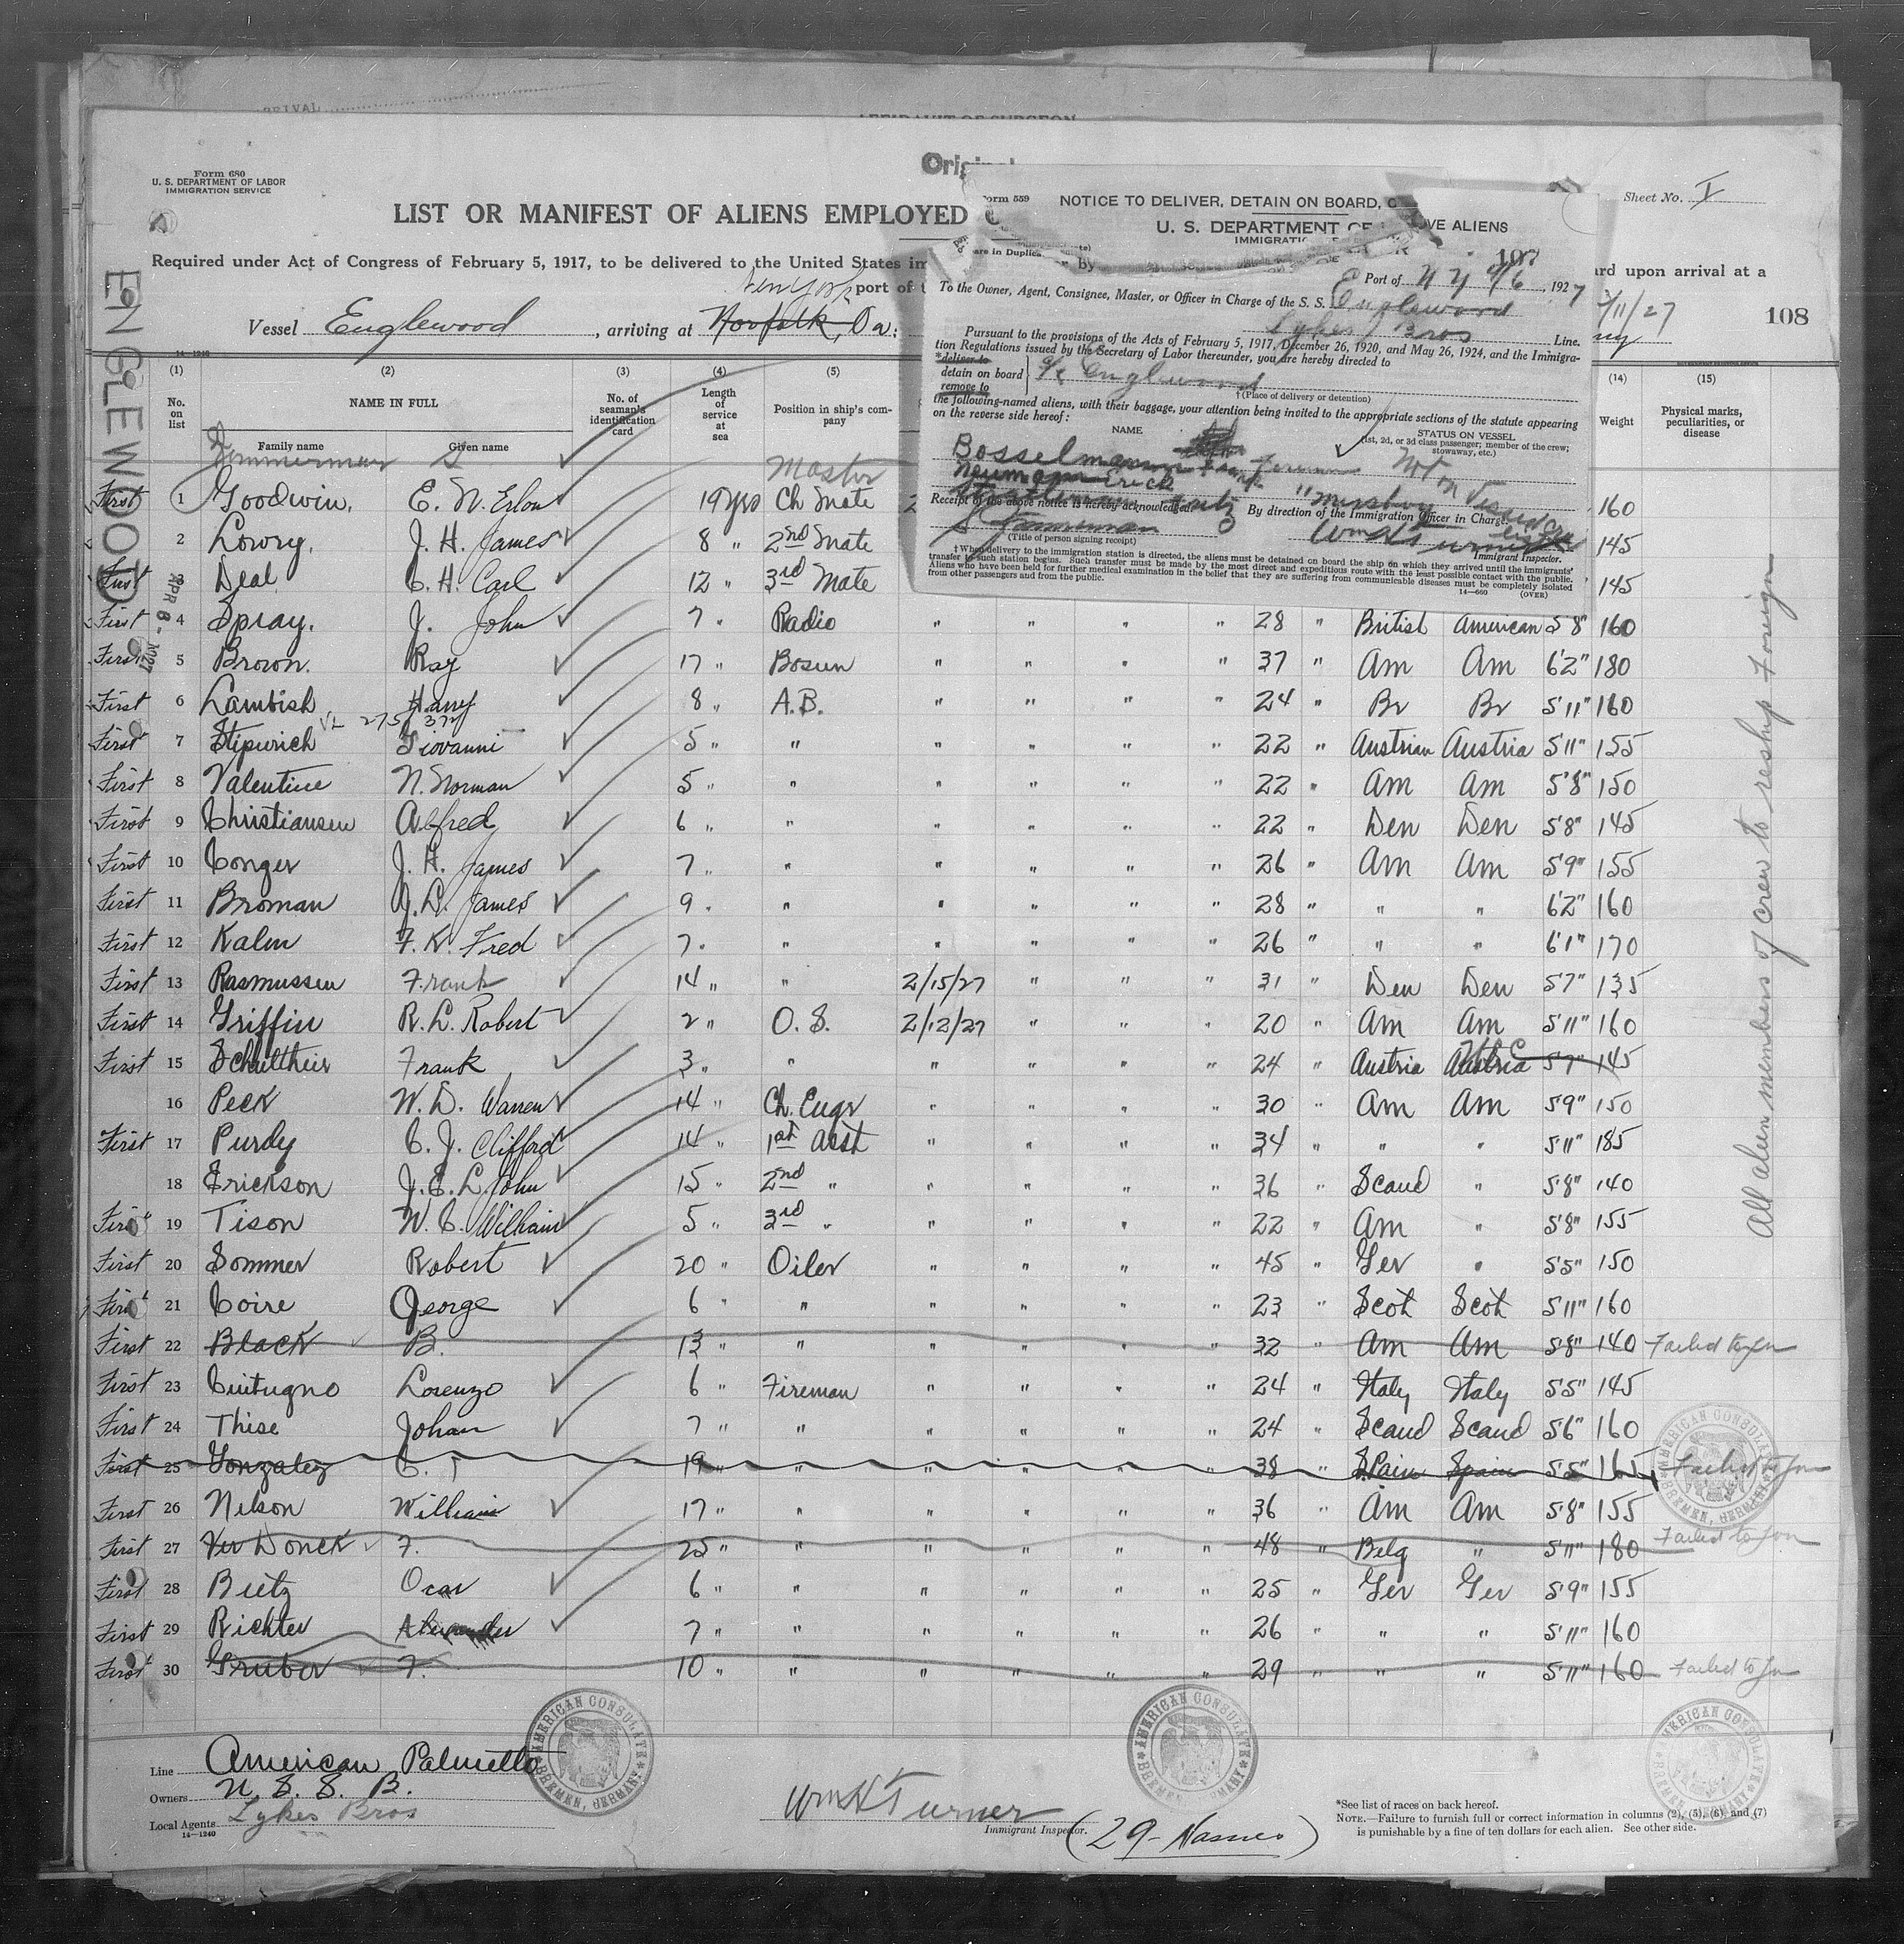 Original
Form 680
U. S. DEPARTMENT OF LABOR
IMMIGRATION SERVICE
Sheet No. I
LIST OR MANIFEST OF ALIENS EMPLOYED
Required under Act of Congress of February 5, 1917, to be delivered to the United States im
rd upon arrival at a
New York port of
Vessel Englewood, arriving at Norfolk, Va:
/11/27
108
ENGLEWOOD
APR 6 - 1927
Form 559
NOTICE TO DELIVER, DETAIN ON BOARD, O
OVE ALIENS
U. S. DEPARTMENT OF
IMMIGRATI
are in Duplica
107
Port of N Y 4/6, 1927
To the Owner, Agent, Consignee, Master, or Officer in Charge of the S. S. Englewood
Lykes Bros Line.
Pursuant to the provisions of the Acts of February 5, 1917, December 26, 1920, and May 26, 1924, and the Immigra-
tion Regulations issued by the Secretary of Labor thereunder, you are hereby directed to
*deliver to
detain on board
remove to
Englewood
†(Place of delivery or detention)
the following-named aliens, with their baggage, your attention being invited to the appropriate sections of the statute appearing
on the reverse side hereof:
NAME
STATUS ON VESSEL
(1st, 2d, or 3d class passenger; member of the crew;
stowaway, etc.)
Bosselmann Not on Vessel
Neumann Erick
Receipt of the above notice is hereby acknowledged.
By direction of the Immigration Officer in Charge.
S Zimmerman
(Title of person signing receipt)
Wm H Turner
Immigrant Inspector.
‡When delivery to the immigration station is directed, the aliens must be detained on board the ship on which they arrived until the Immigrants'
transfer to such station begins. Such transfer must be made by the most direct and expeditious route with the least possible contact with the public.
Aliens who have been held for further medical examination in the belief that they are suffering from communicable diseases must be completely isolated
from other passengers and from the public.
14—660 (OVER)
14—1240
(1) (2) (3) (4) (5) (14) (15)
No. on list
NAME IN FULL
Family name Given name
No. of seaman's identification card
Length of service at sea
Position in ship's com-pany
Weight
Physical marks, peculiarities, or disease
Zimmerman S Master
First 1 Goodwin, E. N. Erlon 19 yrs Ch Mate 160
2 Lowry, J. H. James 8 " 2nd Mate 145
First 3 Deal C. H. Carl 12 " 3rd Mate 145
First 4 Spray. J. John 7 " Radio " " " " 28 " British American 5'8" 160
First 5 Brown. Ray 17 " Bosun " " " " 37 " Am Am 6'2" 180
First 6 Lambish Harry 8 " A.B. " " " " 24 " Br Br 5'11" 160
First 7 Stipwich Giovanni 5 " " " " " " 22 " Austrian Austria 5'11" 155
First 8 Valentine N. Norman 5 " " " " " " 22 " Am Am 5'8" 150
First 9 Christiansen Alfred 6 " " " " " " 22 " Den Den 5'8" 145
First 10 Conger J. H. James 7 " " " " " " 26 " Am Am 5'9" 155
First 11 Broman J. L. James 9 " " " " " " 28 " " " 6'2" 160
First 12 Kalm F. K. Fred 7 " " " " " " 26 " " " 6'1" 170
First 13 Rasmussen Frank 14 " " 2/15/27 " " " 31 " Den Den 5'7" 135
First 14 Griffin R. L. Robert 2 " O. S. 2/12/27 " " " 20 " Am Am 5'11" 160
First 15 Schultheis Frank 3 " " " " " " 24 " Austria Austria 5'7" 145
16 Peck W. D. Warren 14 " Ch. Engr " " " " 30 " Am Am 5'9" 150
First 17 Purdy C. J. Clifford 14 " 1st Asst " " " " 34 " " " 5'11" 185
18 Erickson J. E. L. John 15 " 2nd " " " " " 36 " Scand " 5'8" 140
First 19 Tison W. C. William 5 " 3rd " " " " " 22 " Am " 5'8" 155
First 20 Sommer Robert 20 " Oiler " " " " 45 " Ger " 5'5" 150
First 21 Coire George 6 " " " " " " 23 " Scot Scot 5'11" 160
First 22 Black B. 13 " " " " " " 32 " Am Am 5'8" 140 Failed to Join
First 23 Cuitugno Lorenzo 6 " Fireman " " " " 24 " Italy Italy 5'5" 145
First 24 Thise Johan 7 " " " " " " 24 " Scand Scand 5'6" 160
First 25 Gonzalez C. 19 " " " " " " 38 " Spain Spain 5'5" 165 Failed to Join
First 26 Nelson William 17 " " " " " " 36 " Am Am 5'8" 155
First 27 Ver Donck F. 25 " " " " " " 48 " Belg " 5'11" 180 Failed to Join
First 28 Bietz Oscar 6 " " " " " " 25 " Ger Ger 5'9" 155
First 29 Richter Alexander 7 " " " " " " 26 " " " 5'11" 160
First 30 Gruber F. 10 " " " " " " 29 " " " 5'11" 160 Failed to Join
All alien members of crew to reship foreign
AMERICAN CONSULATE BREMEN, GERMANY
AMERICAN CONSULATE BREMEN, GERMANY
AMERICAN CONSULATE BREMEN, GERMANY
AMERICAN CONSULATE BREMEN, GERMANY
Line American Palmetto
Owners U. S. S. B.
Local Agents Lykes Bros
14—1240
Wm H Turner
Immigrant Inspector.
(29 - Names)
*See list of races on back hereof.
NOTE.—Failure to furnish full or correct information in columns (2), (5), (6), and (7)
is punishable by a fine of ten dollars for each alien. See other side.